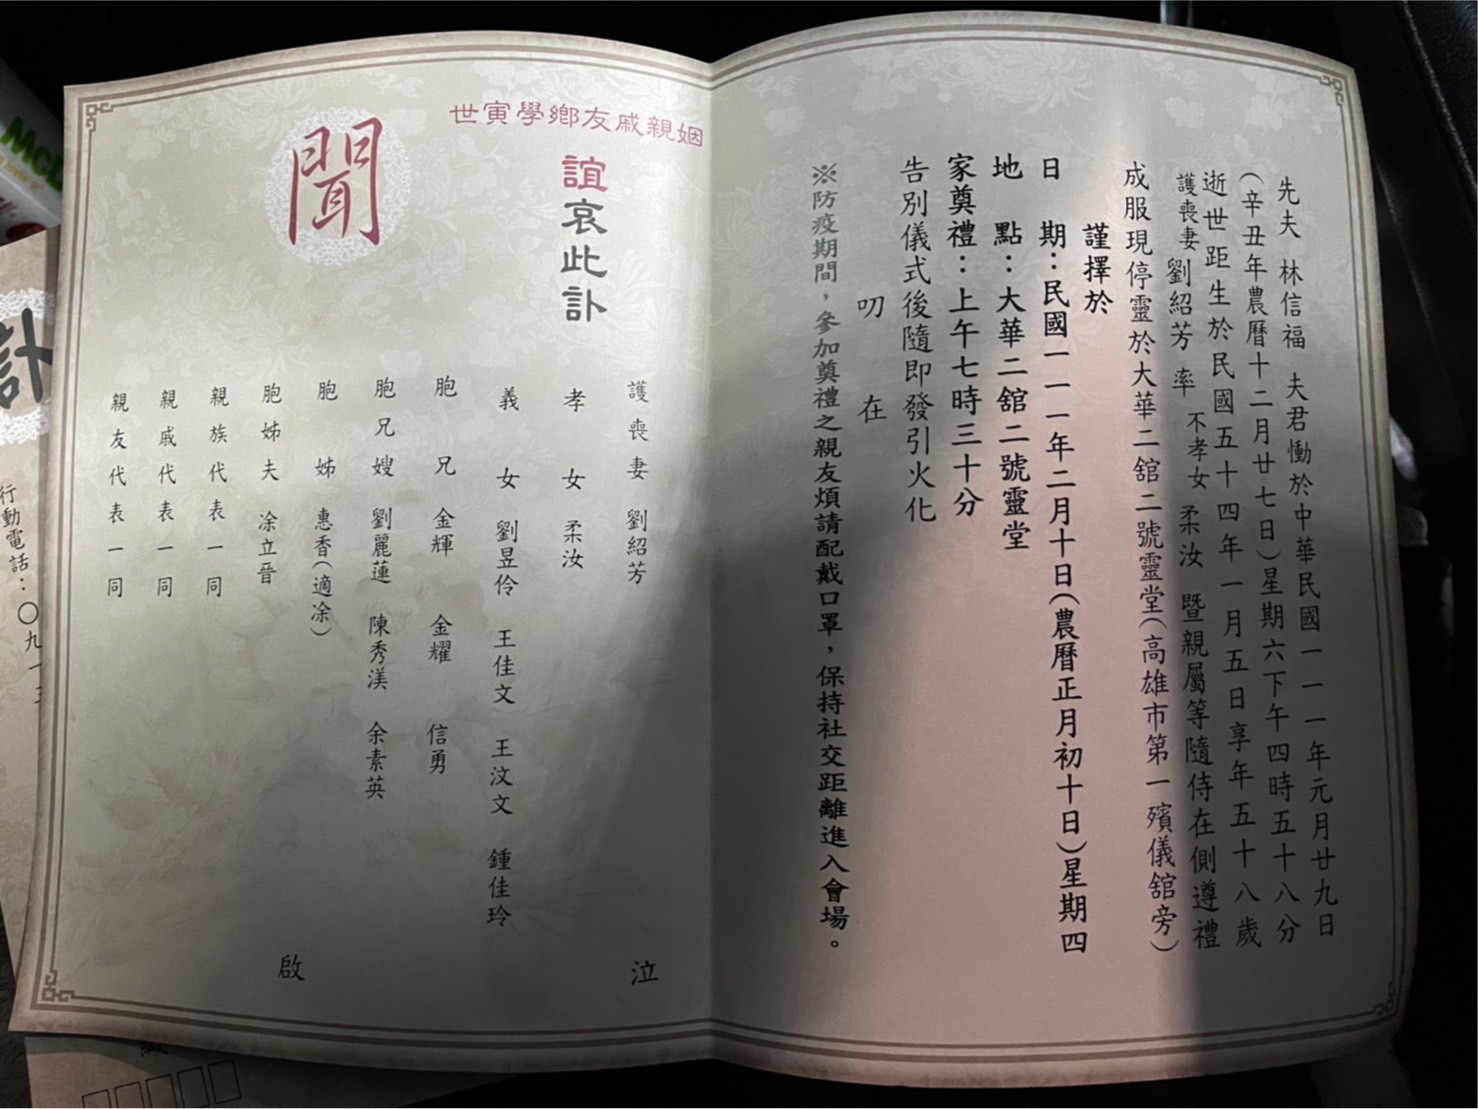 先夫 林信福 夫君慟於中華民國一一一年元月廿九日
(辛丑年農曆十二月廿七日)星期六下午四時五十八分
逝世距生於民國五十四年一月五日享年五十八歲
護喪妻 劉紹芳 率 不孝女 柔汝 暨親屬等隨侍在側遵禮
成服現停靈於大華二舘二號靈堂(高雄市第一殯儀舘旁)
謹擇於
日期:民國一一一年二月十日(農曆正月初十日)星期四
地點:大華二舘二號靈堂
家奠禮:上午七時三十分
告別儀式後隨即發引火化
叨在
※防疫期間,參加奠禮之親友煩請配戴口罩,保持社交距離進入會場。
姻親戚友鄉學寅世
誼哀此訃
聞
護喪妻 劉紹芳 泣
孝女 柔汝
義女 劉昱伶 王佳文 王汶文 鍾佳玲
胞兄 金輝 金耀 信勇
胞兄嫂 劉麗蓮 陳秀渼 余素英
胞姊 惠香(適凃)
胞姊夫 凃立晉 啟
親族代表一同
親戚代表一同
親友代表一同
訃
行動電話:〇九一